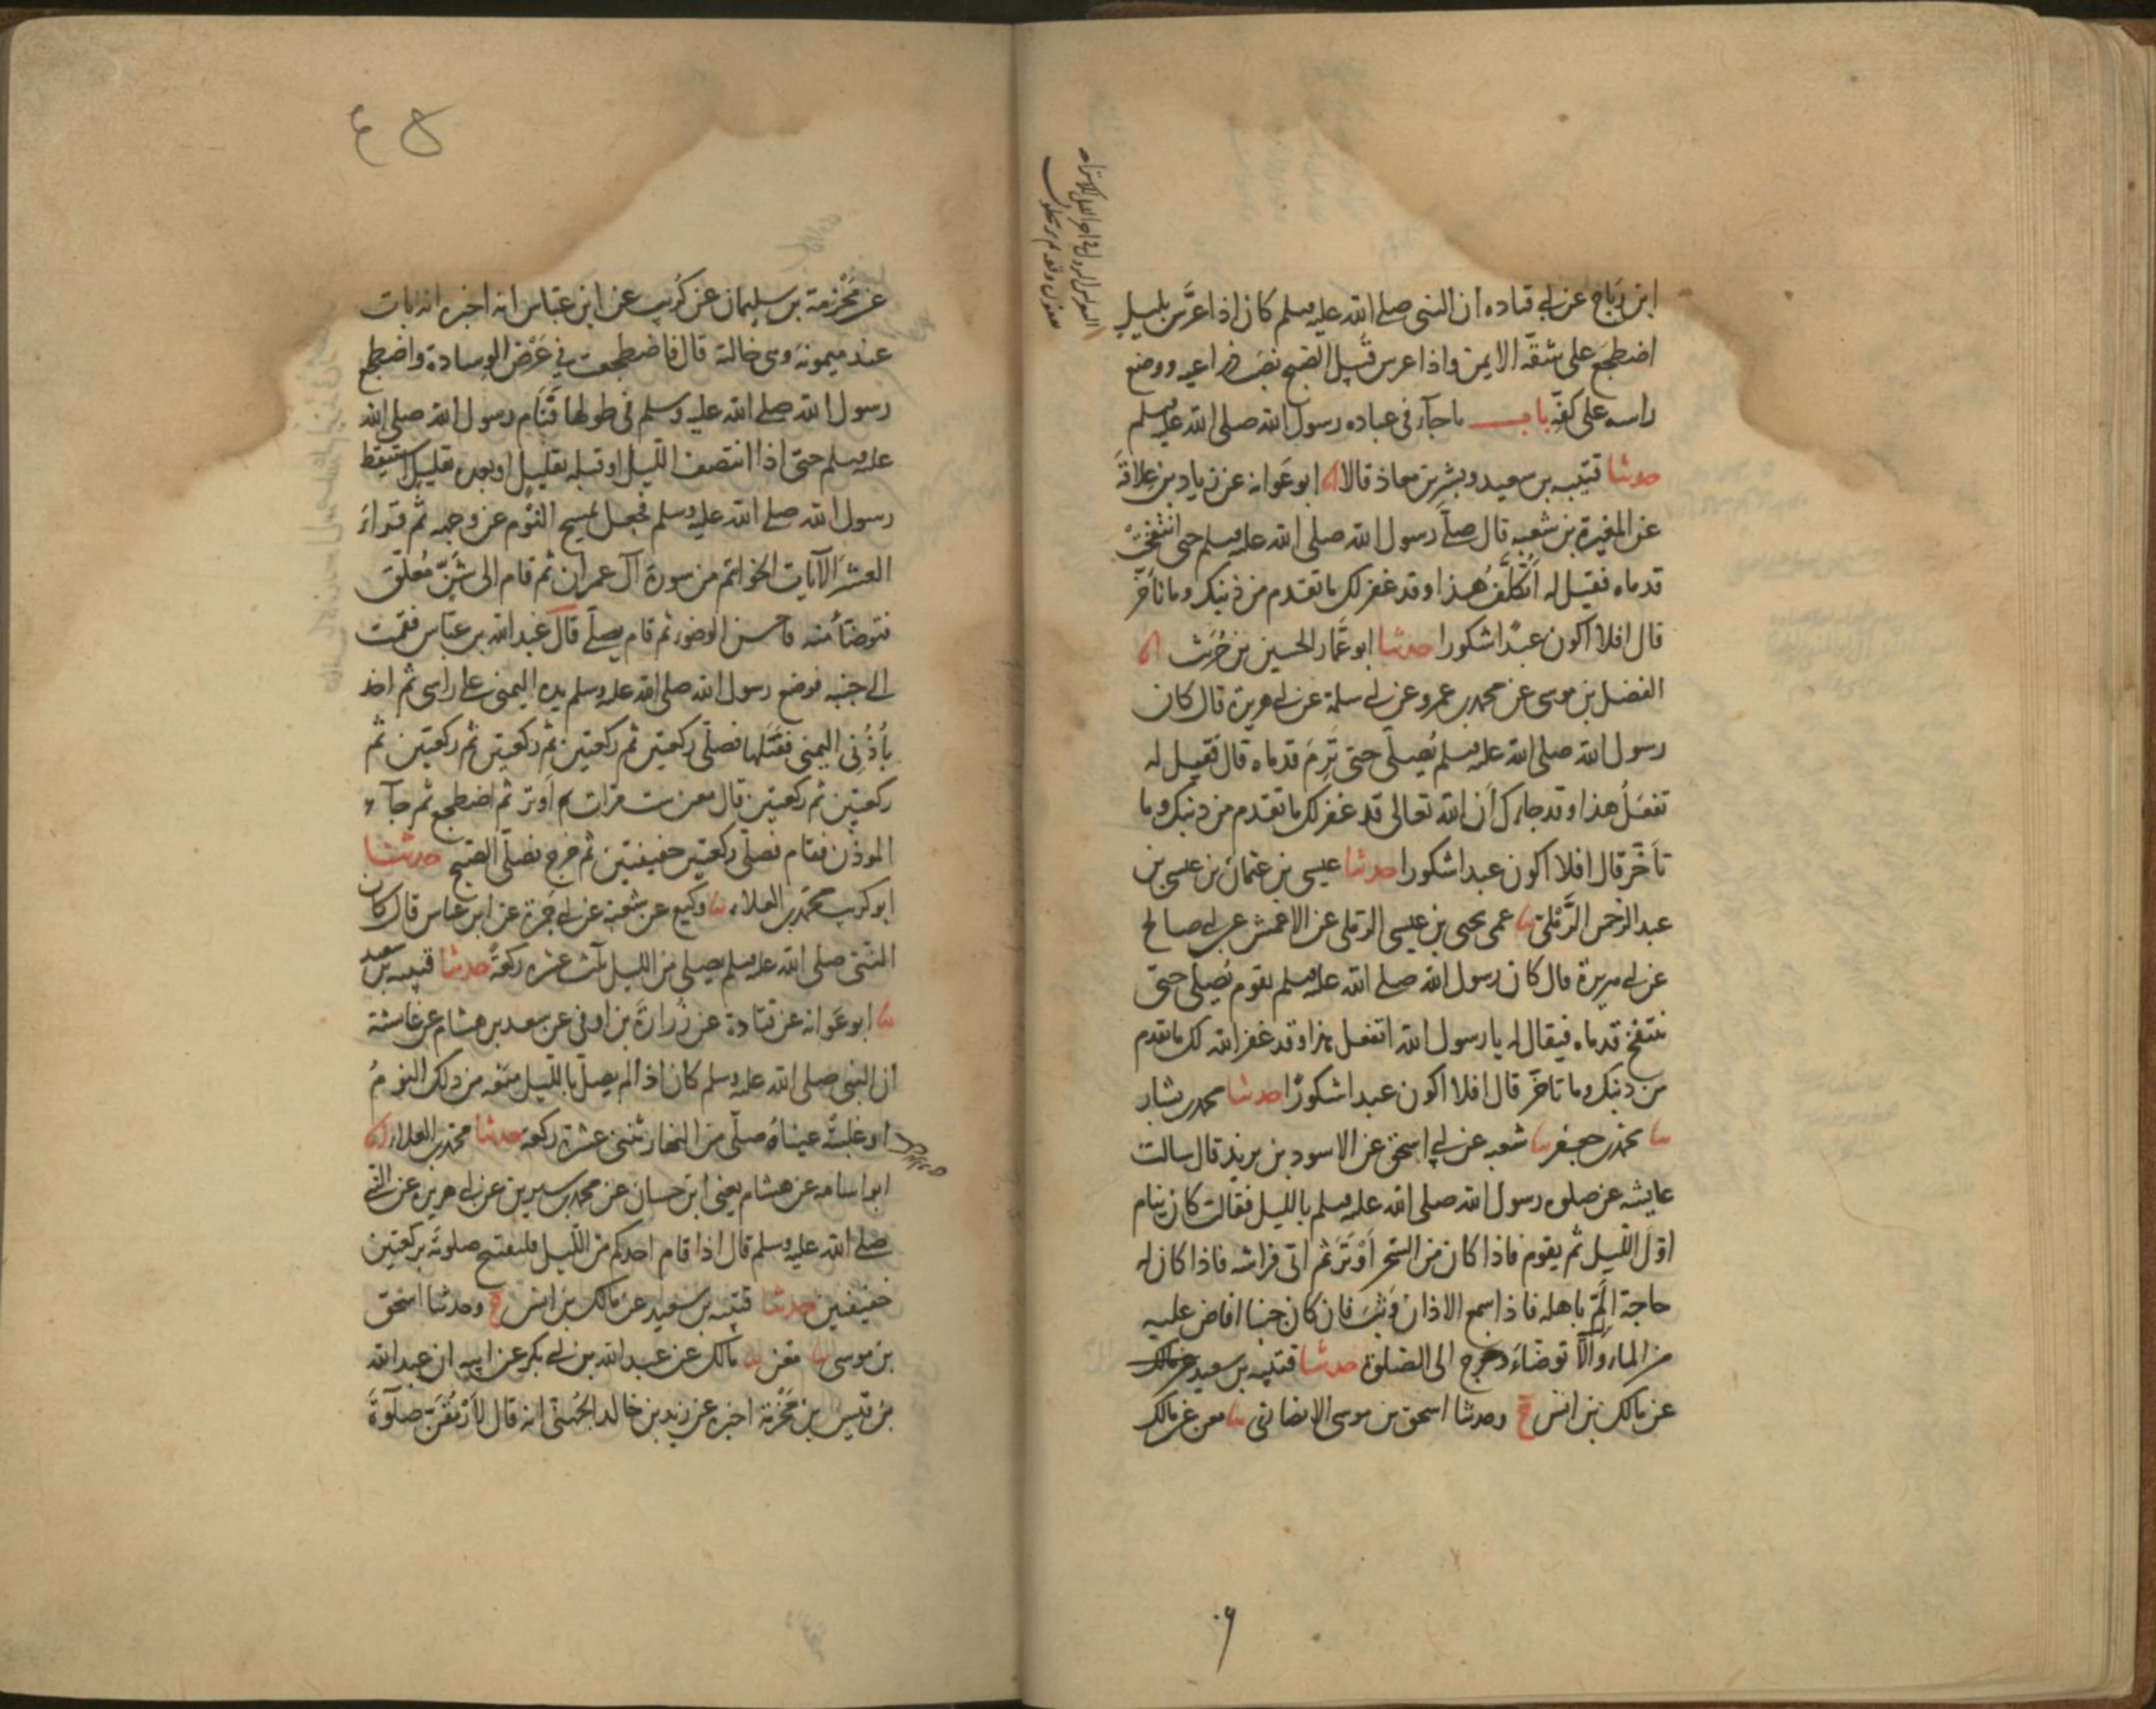 ابن رَبَاح عن ابي قتاده ان النبي صلى الله عليه وسلم كان اذا عرَّس بليلٍ
اضطجع على شقّه الايمن واذا عرس قُبيل الصبح نصب ذراعيه ووضع
راسه على كفّه باب ما جآء في عباده رسول الله صلى الله عليه وسلم
حدثنا قتيبه بن سعيد وبشر بن معاذ قالا انا ابو عَوانه عن زياد بن عِلاقَة
عن المغيرة بن شعبه قال صلّى رسول الله صلى الله عليه وسلم حتى انتفخَتْ
قدماه فقيل له أتتكلّفُ هذا وقد غفر لك ما تقدم من ذنبك وما تأخّر
قال افلا اكون عبدًا شكورا حدثنا ابو عَمّار الحسين بن حُرَيث انا
الفضل بن موسى عن محمد بن عمرو عن ابي سلمة عن ابي هريرة قال كان
رسول الله صلى الله عليه وسلم يُصلّي حتى تَرِمَ قدماه قال فقيل له
تفعَلُ هذا وقد جاءك أن الله تعالى قد غفر لك ما تقدم من ذنبك وما
تأخّر قال افلا اكون عبدا شكورا حدثنا عيسى بن عثمان بن عيسى بن
عبد الرحمن الرَّمْلي ثنا عمى يحيى بن عيسى الرملى عن الاعمش عن ابي صالح
عن ابي هريرة قال كان رسول الله صلى الله عليه وسلم يقوم يُصلّي حتى
تنتفخ قدماه فيقال له يا رسول الله اتفعل هذا وقد غفر الله لك ما تقدم
من ذنبك وما تاخّر قال افلا اكون عبدا شكورًا حدثنا محمد بن بشار
ثنا محمد بن جعفر ثنا شعبه عن ابي اسحق عن الاسود بن يزيد قال سالت
عايشه عن صلوه رسول الله صلى الله عليه وسلم بالليل فقالت كان ينام
اوّل الليل ثم يقوم فاذا كان من السّحر أوْتَرَ ثم اتى فراشه فاذا كان له
حاجة ألَمّ باهله فاذا سمع الاذان وَثبَ فان كان جنبا افاض عليه
من الماء وَالّا توضّاءَ وخرج الى الصّلوة حدثنا قتيبه بن سعيد عن مالك
عن مالك بن انس ح وحدثنا اسحق بن موسى الانصاري ثنا معن عن مالك
٩٠
٤٥
عن مَخْرَمة بن سليمان عن كُرَيب عن ابن عبّاس انه اخبره انه بات
عند ميمونة وهى خالته قال فاضطجعت في عَرْض الوسادة واضطجع
رسول الله صلى الله عليه وسلم في طولها فنَام رسول الله صلى الله
عليه وسلم حتى اذا انتصف الليل او قبله بقليل او بعده بقليل استيقظ
رسول الله صلى الله عليه وسلم فجعل يمسح النَّوْم عن وجهه ثم قراءَ
العشر الآيات الخواتم من سورة آل عمران ثم قام الى شَنّ مُعلّق
فتوضّأ منه فاحسن الوضوء ثم قام يصلّى قال عبد الله بن عبّاس فقمت
الى جنبه فوضع رسول الله صلى الله عليه وسلم يده اليمنى على راسى ثم اخذ
بأُذُنى اليمنى ففتلها فصلّى ركعتين ثم ركعتين ثم ركعتين ثم ركعتين ثم
ركعتين ثم ركعتين قال معن ست مرات ثم أوتر ثم اضطجع ثم جآءه
الموذّن فقام فصلّى ركعتين خفيفتين ثم خرج فصلّى الصّبح حدثنا
ابو كريب محمّد بن العلاء ثنا وكيع عن شعبة عن ابي جمرة عن ابن عباس قال كان
النبي صلى الله عليه وسلم يصلي من الليل ثلث عشره ركعةً حدثنا قتيبه بن سعيد
ثنا ابو عَوانه عن قتادة عن زُرارَةَ بن اوفى عن سعد بن هشام عن عايشة
ان النبي صلى الله عليه وسلم كان اذا لم يصلّ بالليل منعه من ذلك النومُ
او غلبتْه عيناهُ صلّى من النهار ثنتى عشرة ركعة حدثنا محمّد بن العلاء انا
ابو اسامه عن هشام يعني ابن حسان عن محمد بن سيرين عن ابي هريره عن النبي
صلى الله عليه وسلم قال اذا قام احدكم من الليل فليفتتح صلوتَه بركعتين
خفيفتين حدثنا قتيبه بن سعيد عن مالك بن انس ح وحدثنا اسحق
بن موسى ثنا معن ثنا مالك عن عبد الله بن ابي بكر عن ابيه ان عبد الله
بن قيس بن مَخْرَمة اخبره عن زيد بن خالد الجُهَني انه قال لأرْمُقَنّ صلوة